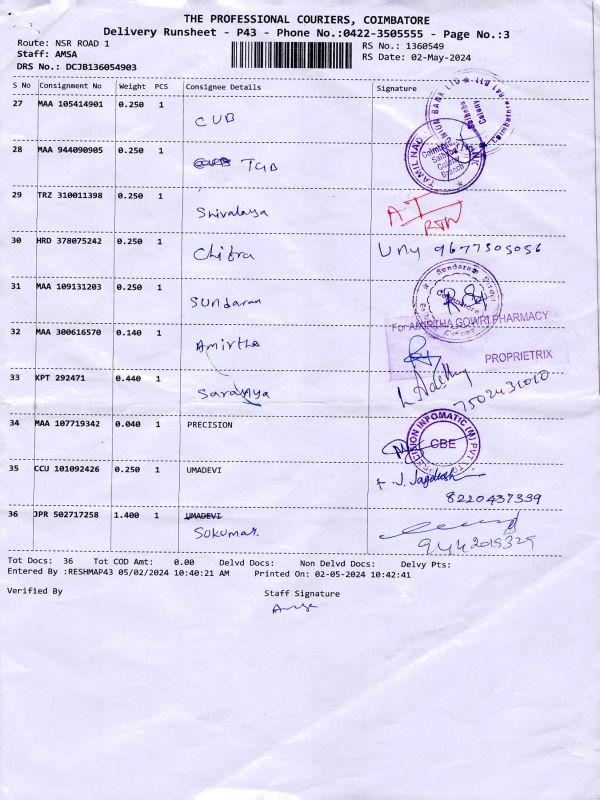 THE PROFESSIONAL COURIERS, COIMBATORE
Delivery Runsheet - P43 - Phone No.:0422-3505555 - Page No.:3
Route: NSR ROAD 1
RS No.: 1360549
Staff: AMSA
RS Date: 02-May-2024
DRS No.: DCJB136054903
S No Consignment No Weight PCS Consignee Details Signature
27 MAA 105414901 0.250 1 CUB
28 MAA 944090905 0.250 1 TGB
TAMIL NAD
Coimbatore
Saibaba
Colony
Branch
29 TRZ 310011398 0.250 1 Shivalaya
30 HRD 378075242 0.250 1 Chitra 9677305056
31 MAA 109131203 0.250 1 Sundaran
32 MAA 300616570 0.140 1 Amirtha
For AMIRTHA GOWRI PHARMACY
PROPRIETRIX
33 KPT 292471 0.440 1 Saranya
7502431010
34 MAA 107719342 0.040 1 PRECISION
PRECISION INFOMATIC (M) PVT. LTD
CBE
35 CCU 101092426 0.250 1 UMADEVI J. Jagdish
8220437339
36 JPR 502717258 1.400 1 UMADEVI
Sokumar.
9442015329
Tot Docs: 36 Tot COD Amt: 0.00 Delvd Docs: Non Delvd Docs: Delvy Pts:
Entered By :RESHMAP43 05/02/2024 10:40:21 AM Printed On : 02-05-2024 10:42:41
Verified By Staff Signature